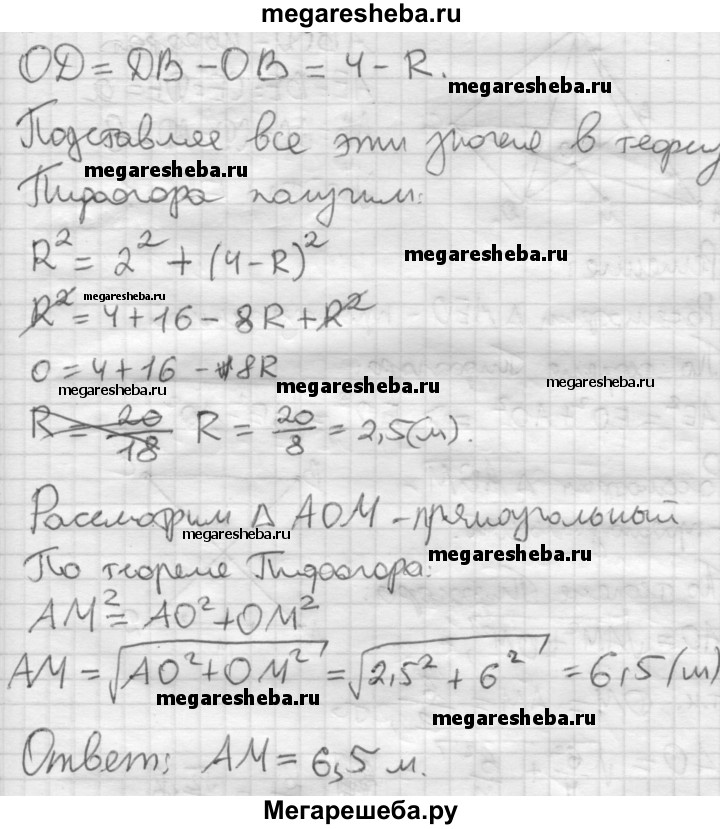 megaresheba.ru
OD = DB - OB = 4 - R.
megaresheba.ru
Подставлее все эти значене в теорему
megaresheba.ru
Пифагора получим:
R² = 2² + (4-R)²
megaresheba.ru
megaresheba.ru
R² = 4 + 16 - 8R + R²
0 = 4 + 16 - 8R
megaresheba.ru megaresheba.ru megaresheba.ru
R = 20/18 R = 20/8 = 2,5(м).
Рассмотрим Δ AOM - прямоугольный
megaresheba.ru
По теореме Пифагора:
megaresheba.ru
AM² = AO² + OM²
AM = √AO² + OM² = √2,5² + 6² = 6,5 (м)
megaresheba.ru
megaresheba.ru
Ответ: AM = 6,5 м.
Мегарешеба.ру